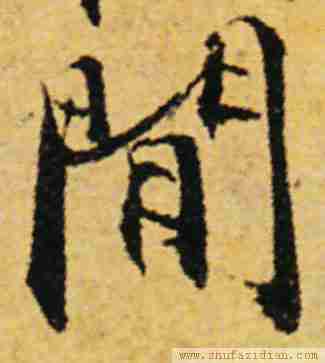 閒
www.shufazidian.com